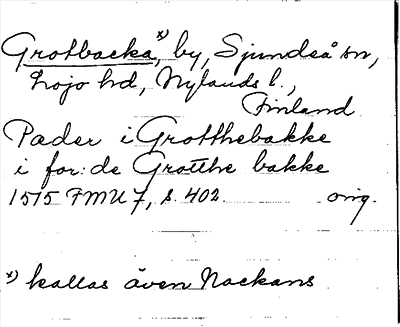 Grotbacka, x) by, Sjundeå sn,
Lojo hd, Nylands l.,
Finland
Pæder i Grotthebakke
i for: de Grotthe bakke
1515 FMU 7, s. 402. orig.
x) kallas även Nackans